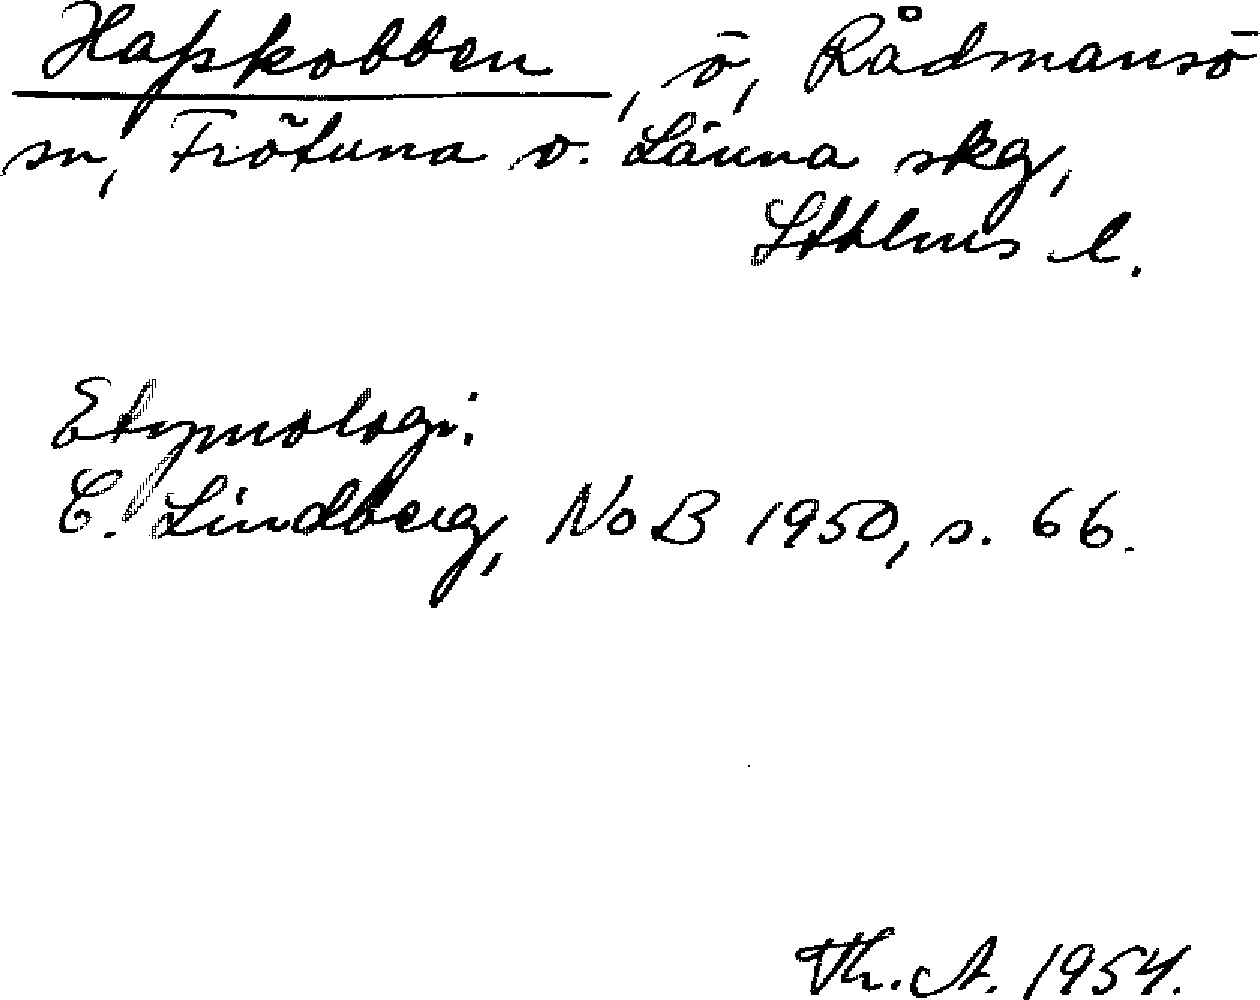 Hapkobben, ö, Rådmansö
sn, Frötuna o. Länna skg,
Sthlms l.
Etymologi.
C. Lindberg, NoB 1950, s. 66.
Th. A. 1954.